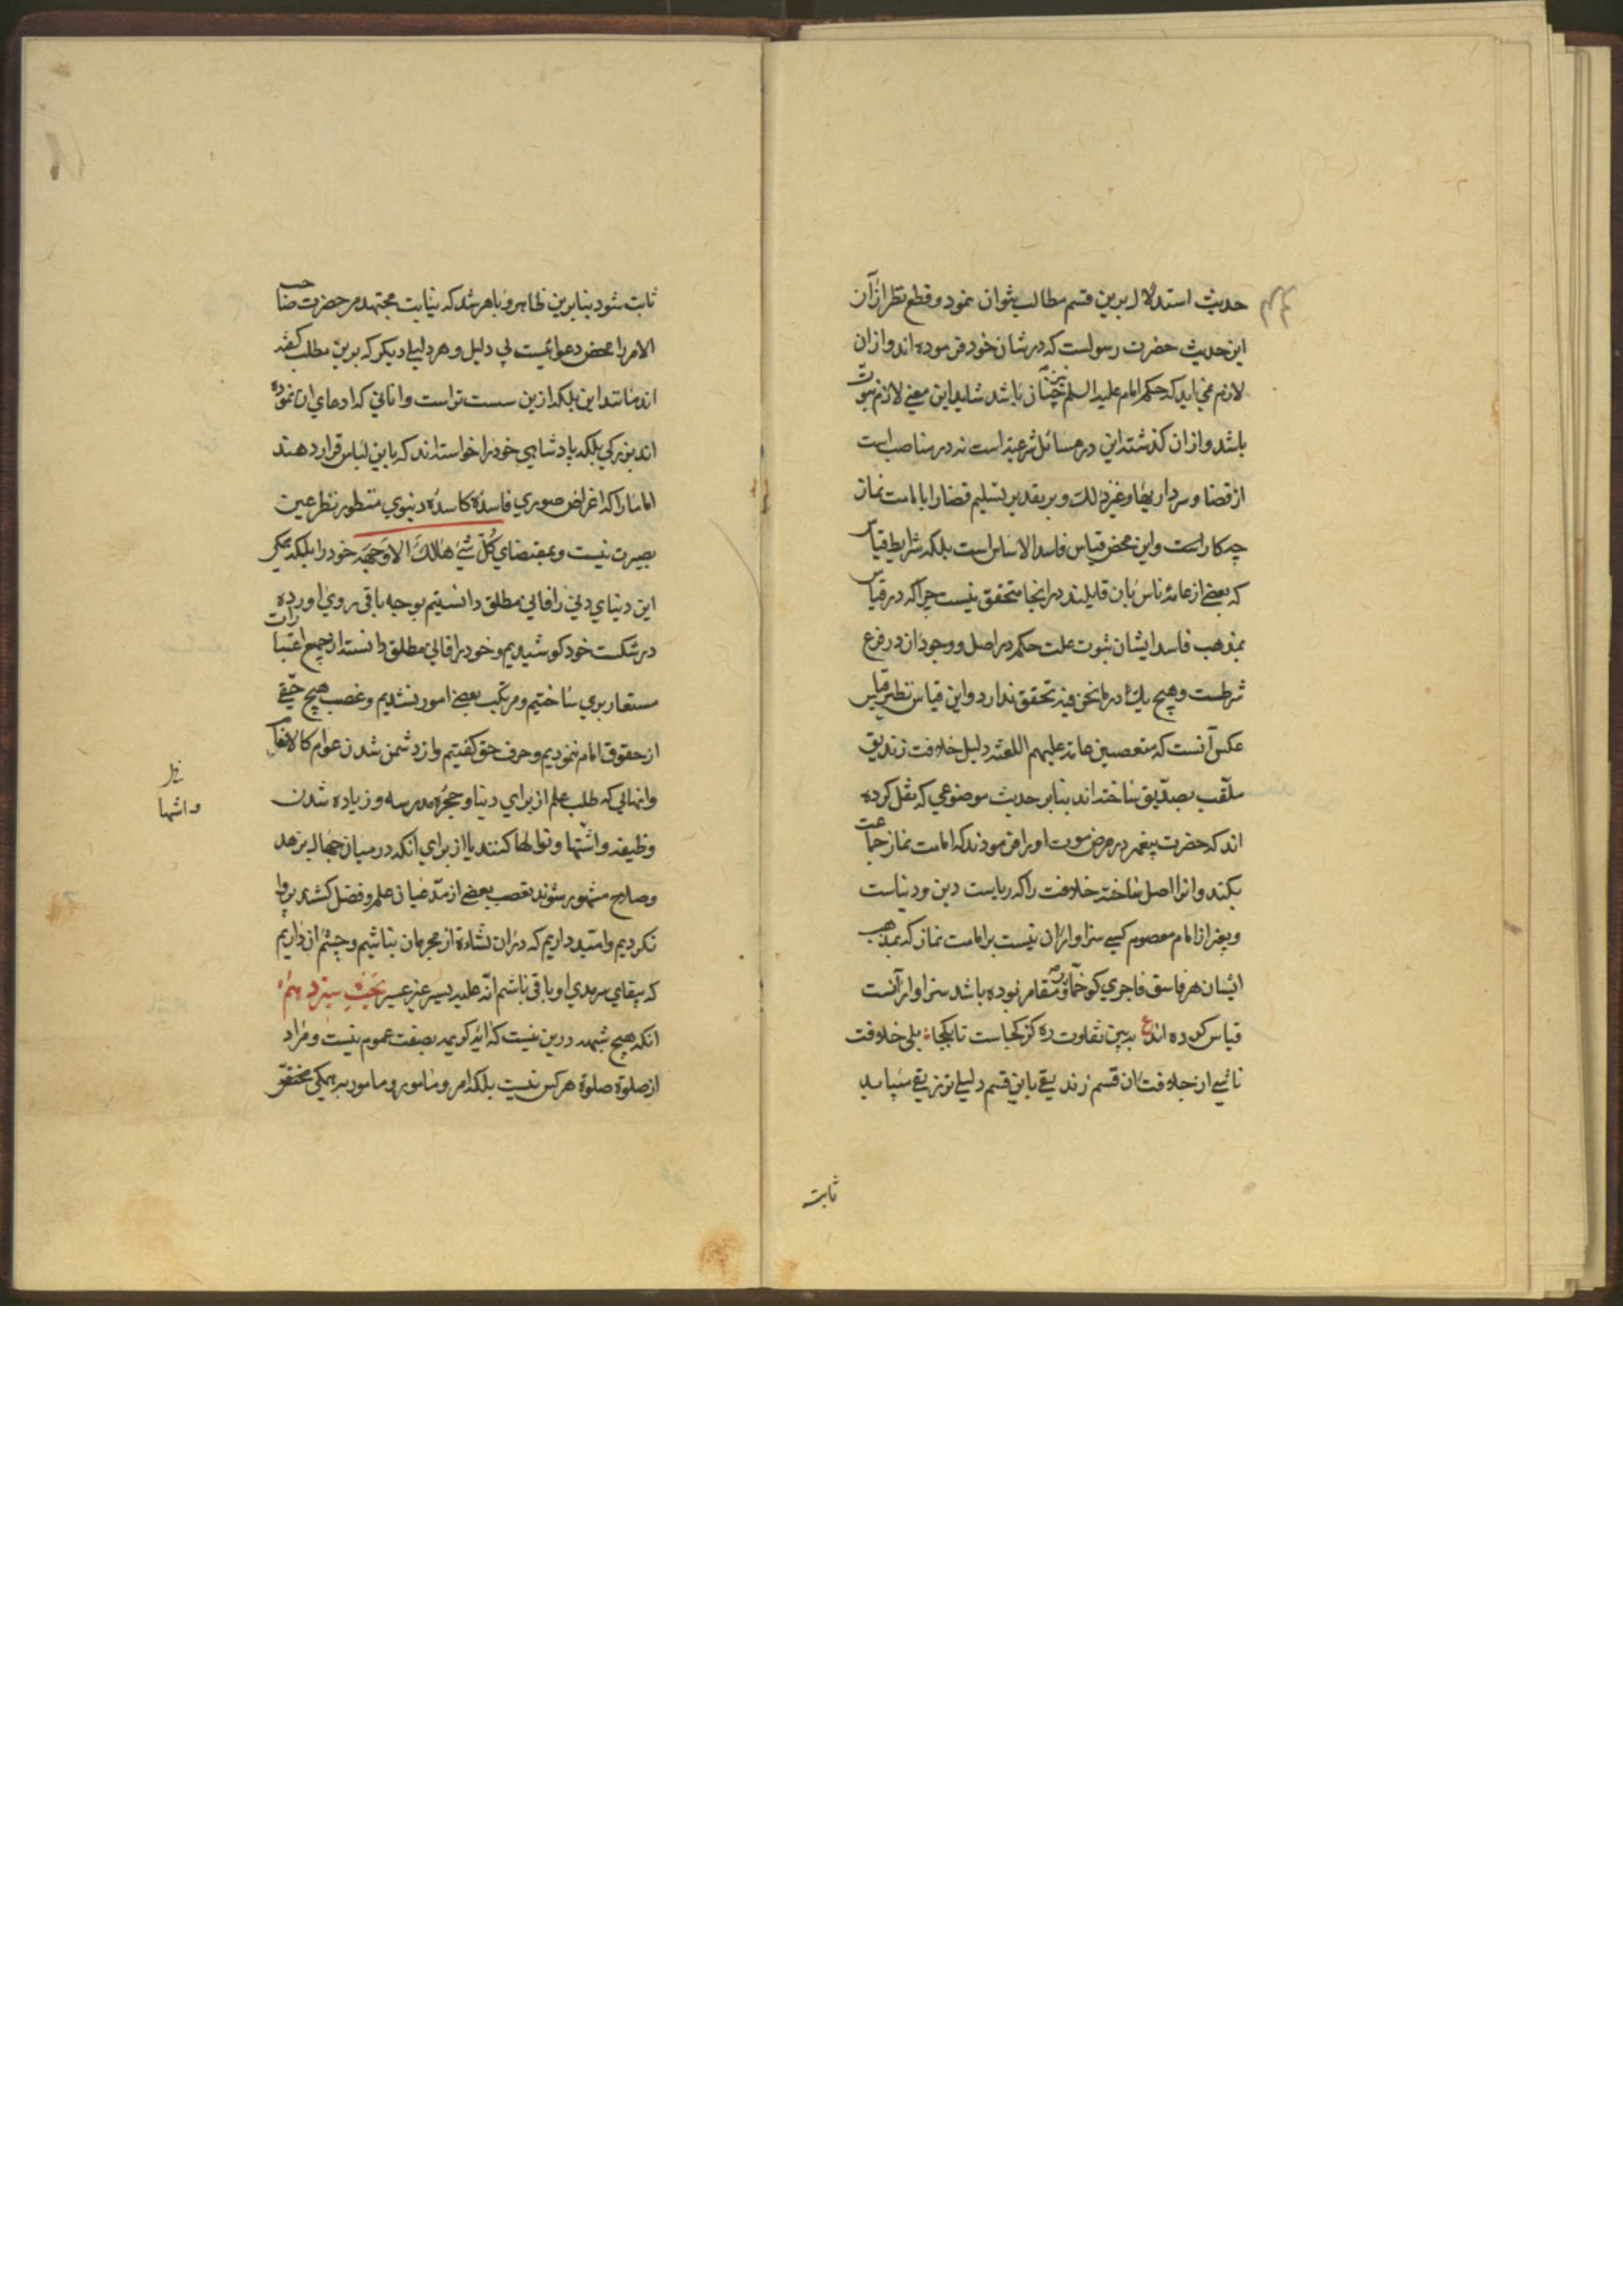 حدیث استدلال برین قسم مطالب بتوان نمود و قطع نظر ازان
این حدیث حضرت رسولست که در شان خود فرموده اند و ازان
لازم نمی اید که حکم امام علیه السلم نیز چنان باشد شاید این معنی لازم نبوت
باشد و ازان گذشته این در مسائل شرعیه است نه در مناصب است
از قضا و سرداریها و غیر ذلك و بر تقدیر تسلیم قضا را بامامت نماز
چکار است و این محض قیاس فاسد الاساس است بلکه شرایط قیاس
که بعضی از عامه ناس بان قایلند در اینجا متحقق نیست چرا که در قیاس
بمذهب فاسد ایشان ثبوت علت حکم در اصل و وجود ان در فرع
شرطست و هیچ یك در ما نحن فیه تحقق ندارد و این قیاس نظیر قیاس
عکس آنست که متعصبین عامه علیهم اللعنه دلیل خلافت زندیق
ملقب بصدیق ساخته اند بنابر حدیث موضوعی که نقل کرده
اند که حضرت پیغمبر در مرض موت او را فرمودند که امامت نماز جماعت
بکند و انرا اصل ساخته خلافت را که ریاست دین و دنیاست
و بغیر از امام معصوم کسی سزاوار ان نیست بر امامت نماز که بمذهب
ایشان هر فاسق فاجری کو خمار و مقامر بوده باشد سزاوار آنست
قیاس کرده اند ع ببین تفاوت ره کز کجاست تا بکجا بلی خلافت
ناشی از خلافت ان قسم زندیقی باین قسم دلیلی تزریقی میباید
ثابت
ثابت شود بنابرین ظاهر و باهر شد که نیابت مجتهد مر حضرت صاحب
الامر را محض دعوائیست بی دلیل و هر دلیلی دیکر که برین مطلب کفته
اند مانند این بلکه ازین سست تر است و انانی که ادعای ان نموده
اند بزرکی بلکه پادشاهی خود را خواسته اند که باین لباس قرار دهند
اما ما را که اغراض صوری فاسده کاسده دنیوی منظور نظر عین
بصیرت نیست و بمقتضای کُلّ شَیْءٍ هٰالِكٌ اِلّا وَجْهَه خود را بلکه
این دنیای دنی را فانی مطلق دانستیم بوجه باقی روی اورده
در شکست خود کوشیدیم و خود را فانی مطلق دانسته از جمیع اعتبارات
مستعار بری ساختیم و مرتکب بعضی امور نشدیم و غصب هیچ حقی
از حقوق امام ننمودیم و حرف حق کفتیم و از دشمن شدن عوام کالانعام
و انهائی که طلب علم از برای دنیا و حجره مدرسه و زیاده شدن
وظیفه و اشتها و نوالها کنند یا از برای انکه در میان جهال بزهد
و صلاح مشهور شوند بتعصب بعضی از مدعیان علم و فضل کشند پروا
نکردیم و امید داریم که در ان نشاءة از مجرمان نباشیم و چشم ان داریم
که ببقای سرمدی او باقی باشیم انه علیه یسیر غیر عسیر بحث سیزدهم
انکه هیچ شبهه درین نیست که ایه کریمه بصفت عموم نیست و مراد
از صلوة صلوة هر کس نیست بلکه امر و مامور و مامور به همکی
و اشتها